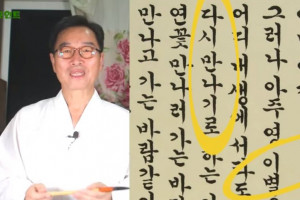 그러나 아주 영 이별은
어디 내생에서라도
다시 만나기로 하는
연꽃 만나러 가는 바
만나고 가는 바람같